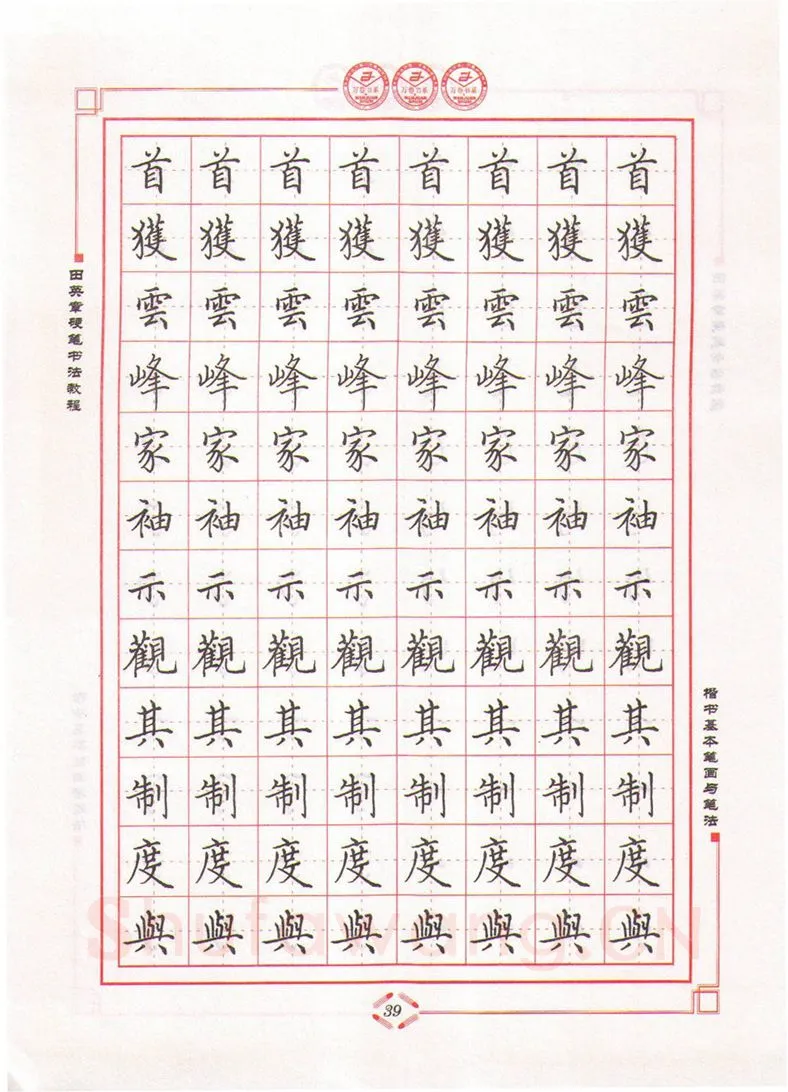 万卷书系 万卷书系 万卷书系
田英章硬笔书法教程
首 首 首 首 首 首 首 首
獲 獲 獲 獲 獲 獲 獲 獲
雲 雲 雲 雲 雲 雲 雲 雲
峰 峰 峰 峰 峰 峰 峰 峰
家 家 家 家 家 家 家 家
袖 袖 袖 袖 袖 袖 袖 袖
示 示 示 示 示 示 示 示
觀 觀 觀 觀 觀 觀 觀 觀
其 其 其 其 其 其 其 其
制 制 制 制 制 制 制 制
度 度 度 度 度 度 度 度
與 與 與 與 與 與 與 與
楷书基本笔画与笔法
Shufawang.CN
39